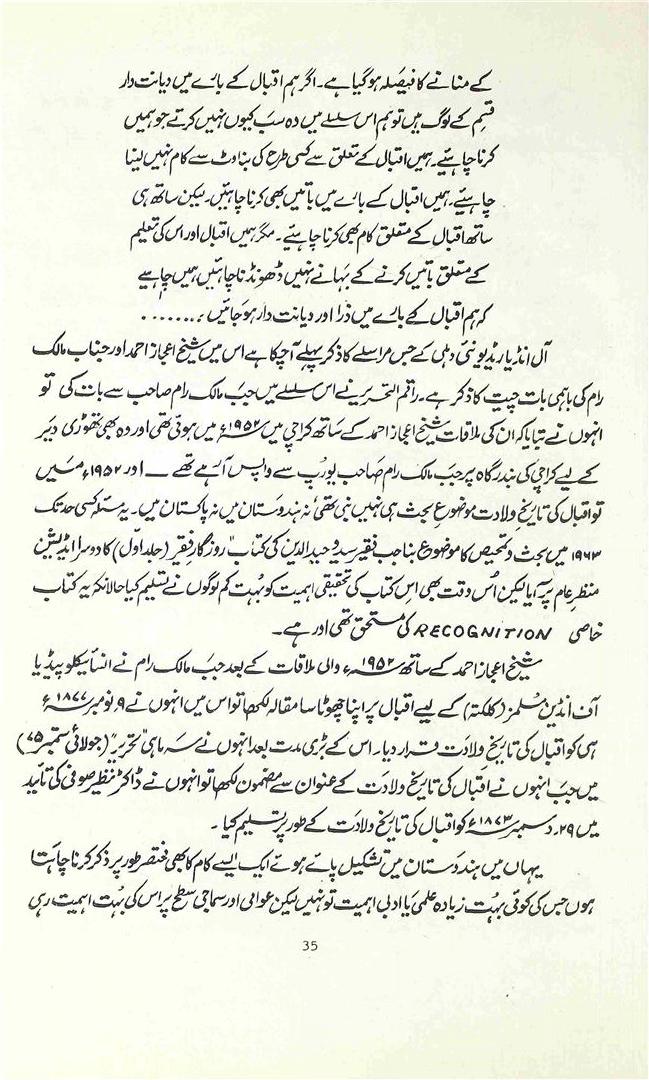 کے منانے کا فیصلہ ہو گیا ہے۔ اگر ہم اقبال کے بارے میں دیانت دار
قسم کے لوگ ہیں تو ہم اس سلسلے میں وہ سب کیوں نہیں کرتے جو ہمیں
کرنا چاہئیے۔ ہمیں اقبال کے تعلق سے کسی طرح کی بناوٹ سے کام نہیں لینا
چاہئیے۔ ہمیں اقبال کے بارے میں باتیں بھی کرنا چاہئیں۔ لیکن ساتھ ہی
ساتھ اقبال کے متعلق کام بھی کرنا چاہئیے۔ مگر ہمیں اقبال اور اس کی تعلیم
کے متعلق باتیں کرنے کے بہانے نہیں ڈھونڈنا چاہئیں ہمیں چاہیے
کہ ہم اقبال کے بارے میں ذرا اور دیانت دار ہو جائیں ۔........
آل انڈیا ریڈیو نئی دہلی کے جس مراسلے کا ذکر پہلے آچکا ہے اس میں شیخ اعجاز احمد اور جناب مالک
رام کی باہمی بات چیت کا ذکر ہے۔ راقم التحریر نے اس سلسلے میں جب مالک رام صاحب سے بات کی تو
انہوں نے بتایا کہ ان کی ملاقات شیخ اعجاز احمد کے ساتھ کراچی میں ۱۹۵۲ء میں ہوئی تھی اور وہ بھی تھوڑی دیر
کے لیے کراچی کی بندرگاہ پر جب مالک رام صاحب یورپ سے واپس آ رہے تھے ـــ اور ۱۹۵۲ء میں
تو اقبال کی تاریخ ولادت موضوع بحث ہی نہیں بنی تھی، نہ ہندوستان میں نہ پاکستان میں۔ یہ مسئلہ کسی حد تک
۱۹۶۳ میں بحث و تمحیص کا موضوع بنا جب فقیر سید وحید الدین کی کتاب "روزگار فقیر (جلد اول) کا دوسرا ایڈیشن
منظرِ عام پر آیا لیکن اُس وقت بھی اس کتاب کی تحقیقی اہمیت کو بہت کم لوگوں نے تسلیم کیا حالانکہ یہ کتاب
خاصی RECOGNITION کی مستحق تھی اور ہے۔
شیخ اعجاز احمد کے ساتھ ۱۹۵۲ء والی ملاقات کے بعد جب مالک رام نے انسائیکلوپیڈیا
آف انڈین مسلمز (کلکتہ) کے لیے اقبال پر اپنا چھوٹا سا مقالہ لکھا تو اس میں انہوں نے ۹ نومبر ۱۸۷۷ء
ہی کو اقبال کی تاریخ ولادت قرار دیا۔ اس کے بڑی مدت بعد انہوں نے سہ ماہی "تحریر" (جولائی ستمبر ۷۵)
میں جب انہوں نے اقبال کی تاریخ ولادت کے عنوان سے مضمون لکھا تو انہوں نے ڈاکٹر نظیر صوفی کی تائید
میں ۲۹۔ دسمبر ۱۸۷۳ء کو اقبال کی تاریخ ولادت کے طور پر تسلیم کیا ۔
یہاں میں ہندوستان میں تشکیل پائے ہوئے ایک ایسے کام کا بھی مختصر طور پر ذکر کرنا چاہتا
ہوں جس کی کوئی بہت زیادہ علمی یا ادبی اہمیت تو نہیں لیکن عوامی اور سماجی سطح پر اس کی بہت اہمیت رہی
35